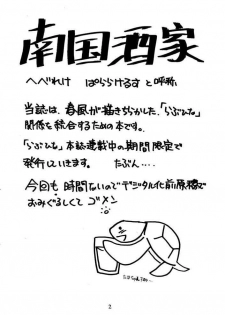 南国酒家
へべれけ ぱららけるす と呼称
当誌は、春風が描きちらかした、「らぶひな」
関係を統合するための本です。
「らぶひな」本誌連載中の期間限定で
発行していきます。 たぶん…
今回も時間ないのでデジタル化前原稿で
おみぐるしくて ゴメン
2